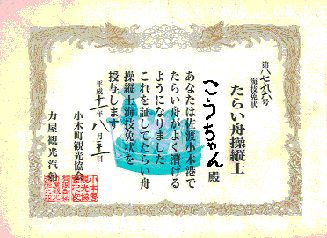 海技免状
たらい舟操縦士
こうちゃん 殿
あなたは佐渡小木港で
たらい舟がよく漕げる
ようになりました
これを証してたらい舟
操縦士海技免状を
授与します
平成十一年八月三十一日
小木町観光協会
力屋観光汽船